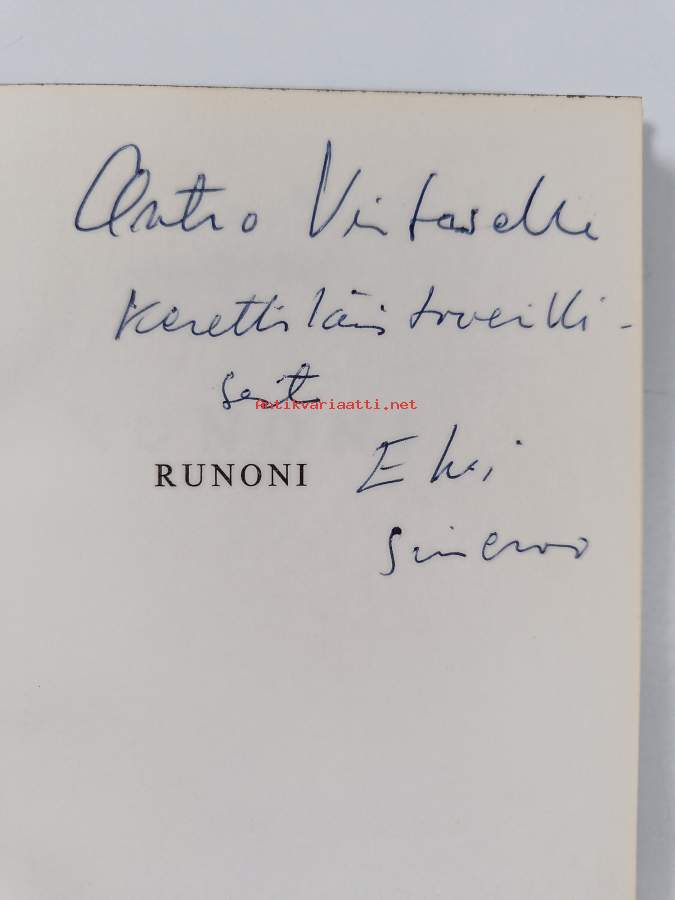 Antro Virtaselle
Kerettiläistoverilli-
sesti
Antikvariaatti.net
RUNONI
Elvi
Sinervo